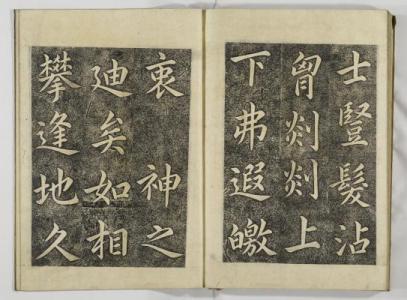 士豎髮沾
胷剡剡上
下弗遐皦
衷神之
廸矣如相
攀逢地久